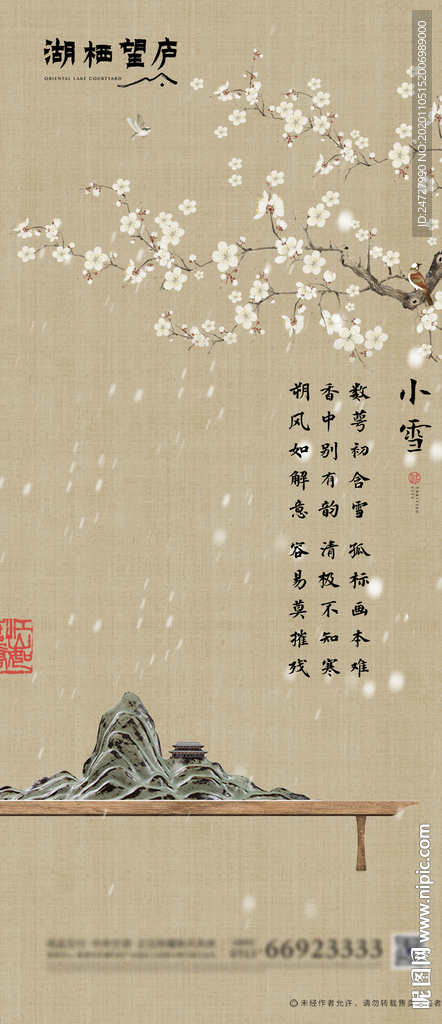 湖栖望庐
ORIENTAL LAKE COURTYARD
小雪
数萼初含雪 孤标画本难
香中别有韵 清极不知寒
朔风如解意 容易莫摧残
66923333
ID:24727990 NO:20201105152006989000
昵图网 www.nipic.com
未经作者允许，请勿转载售卖